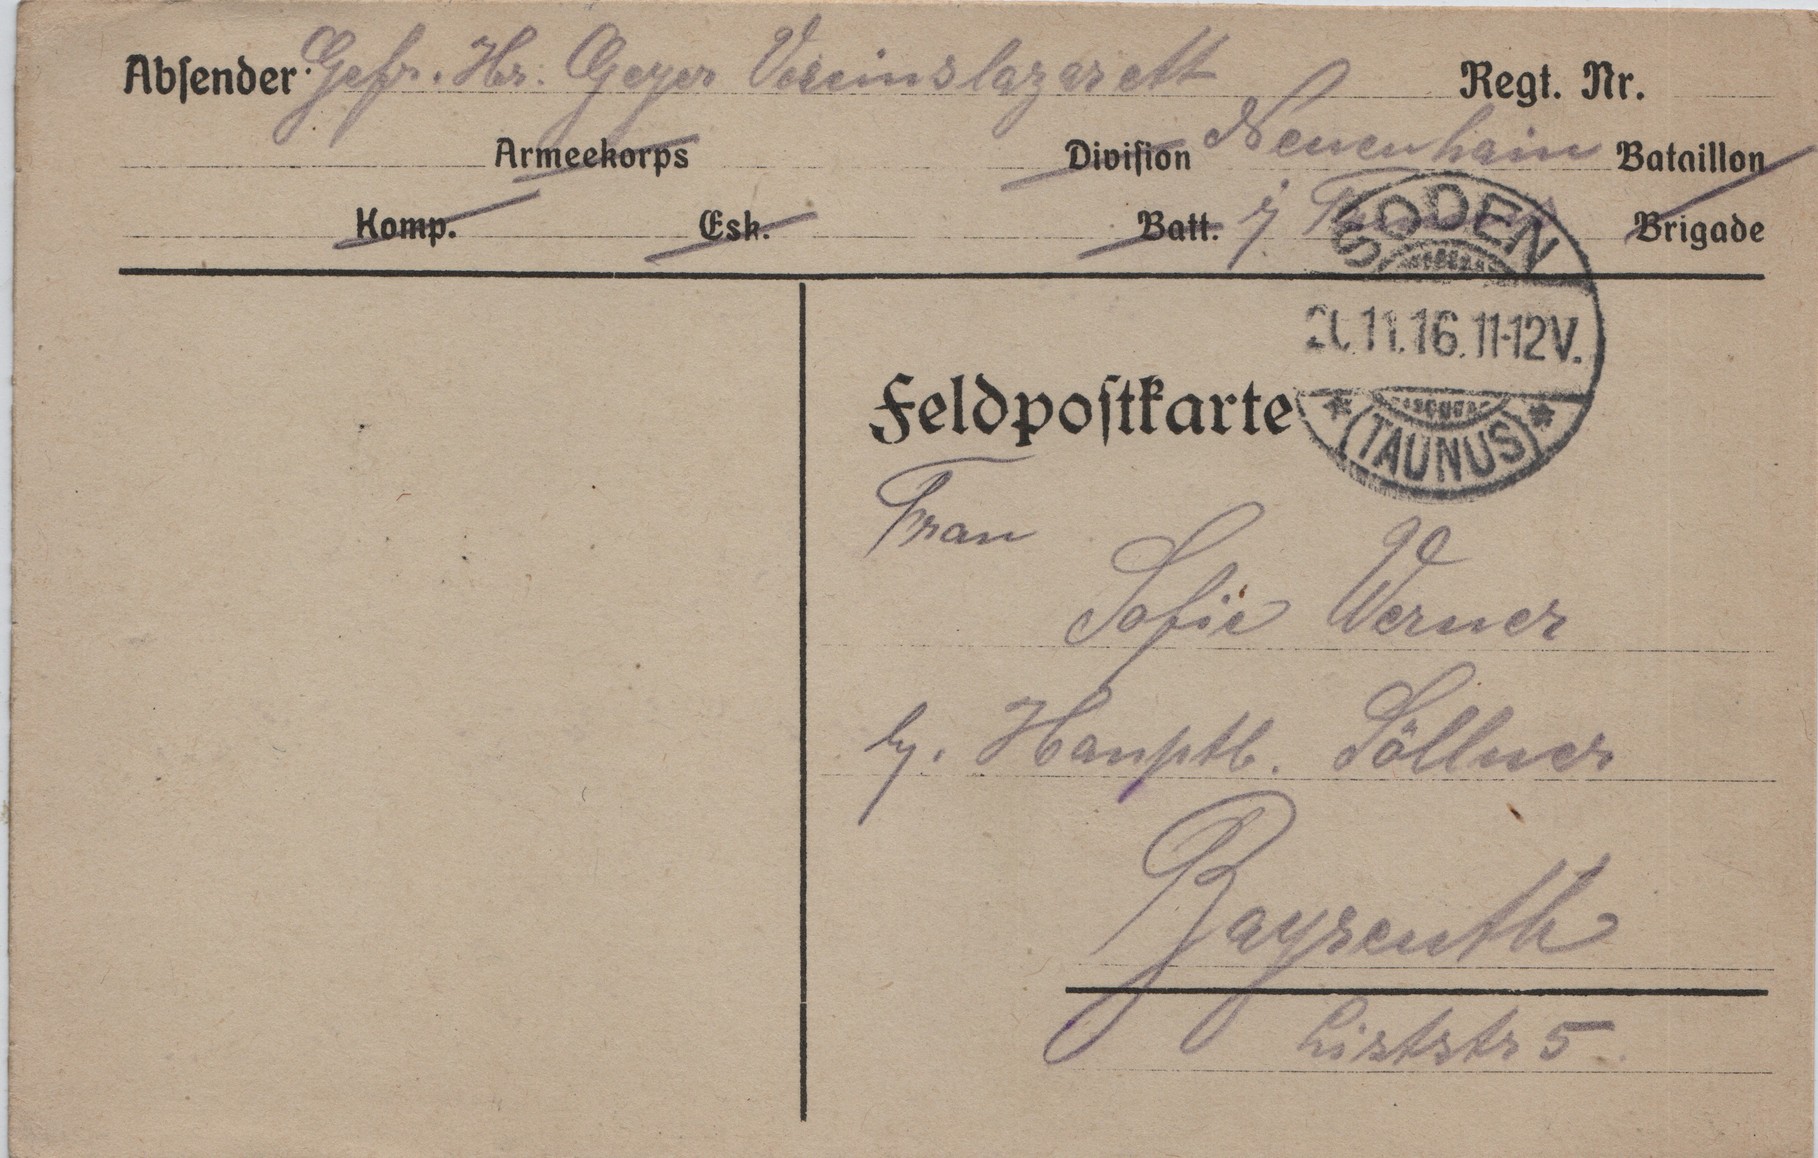 Absender Gefr. Hr. Geyer Vereinslazarett Regt. Nr.
Armeekorps Division Neuenhain Bataillon
Komp. Esk. Batt. i/ Brigade
SODEN
11.16.11-12V.
* (TAUNUS) *
Feldpostkarte
Frau
Sofie Werner
Hauptb. Söllner
Bayreuth
Liststr 5.